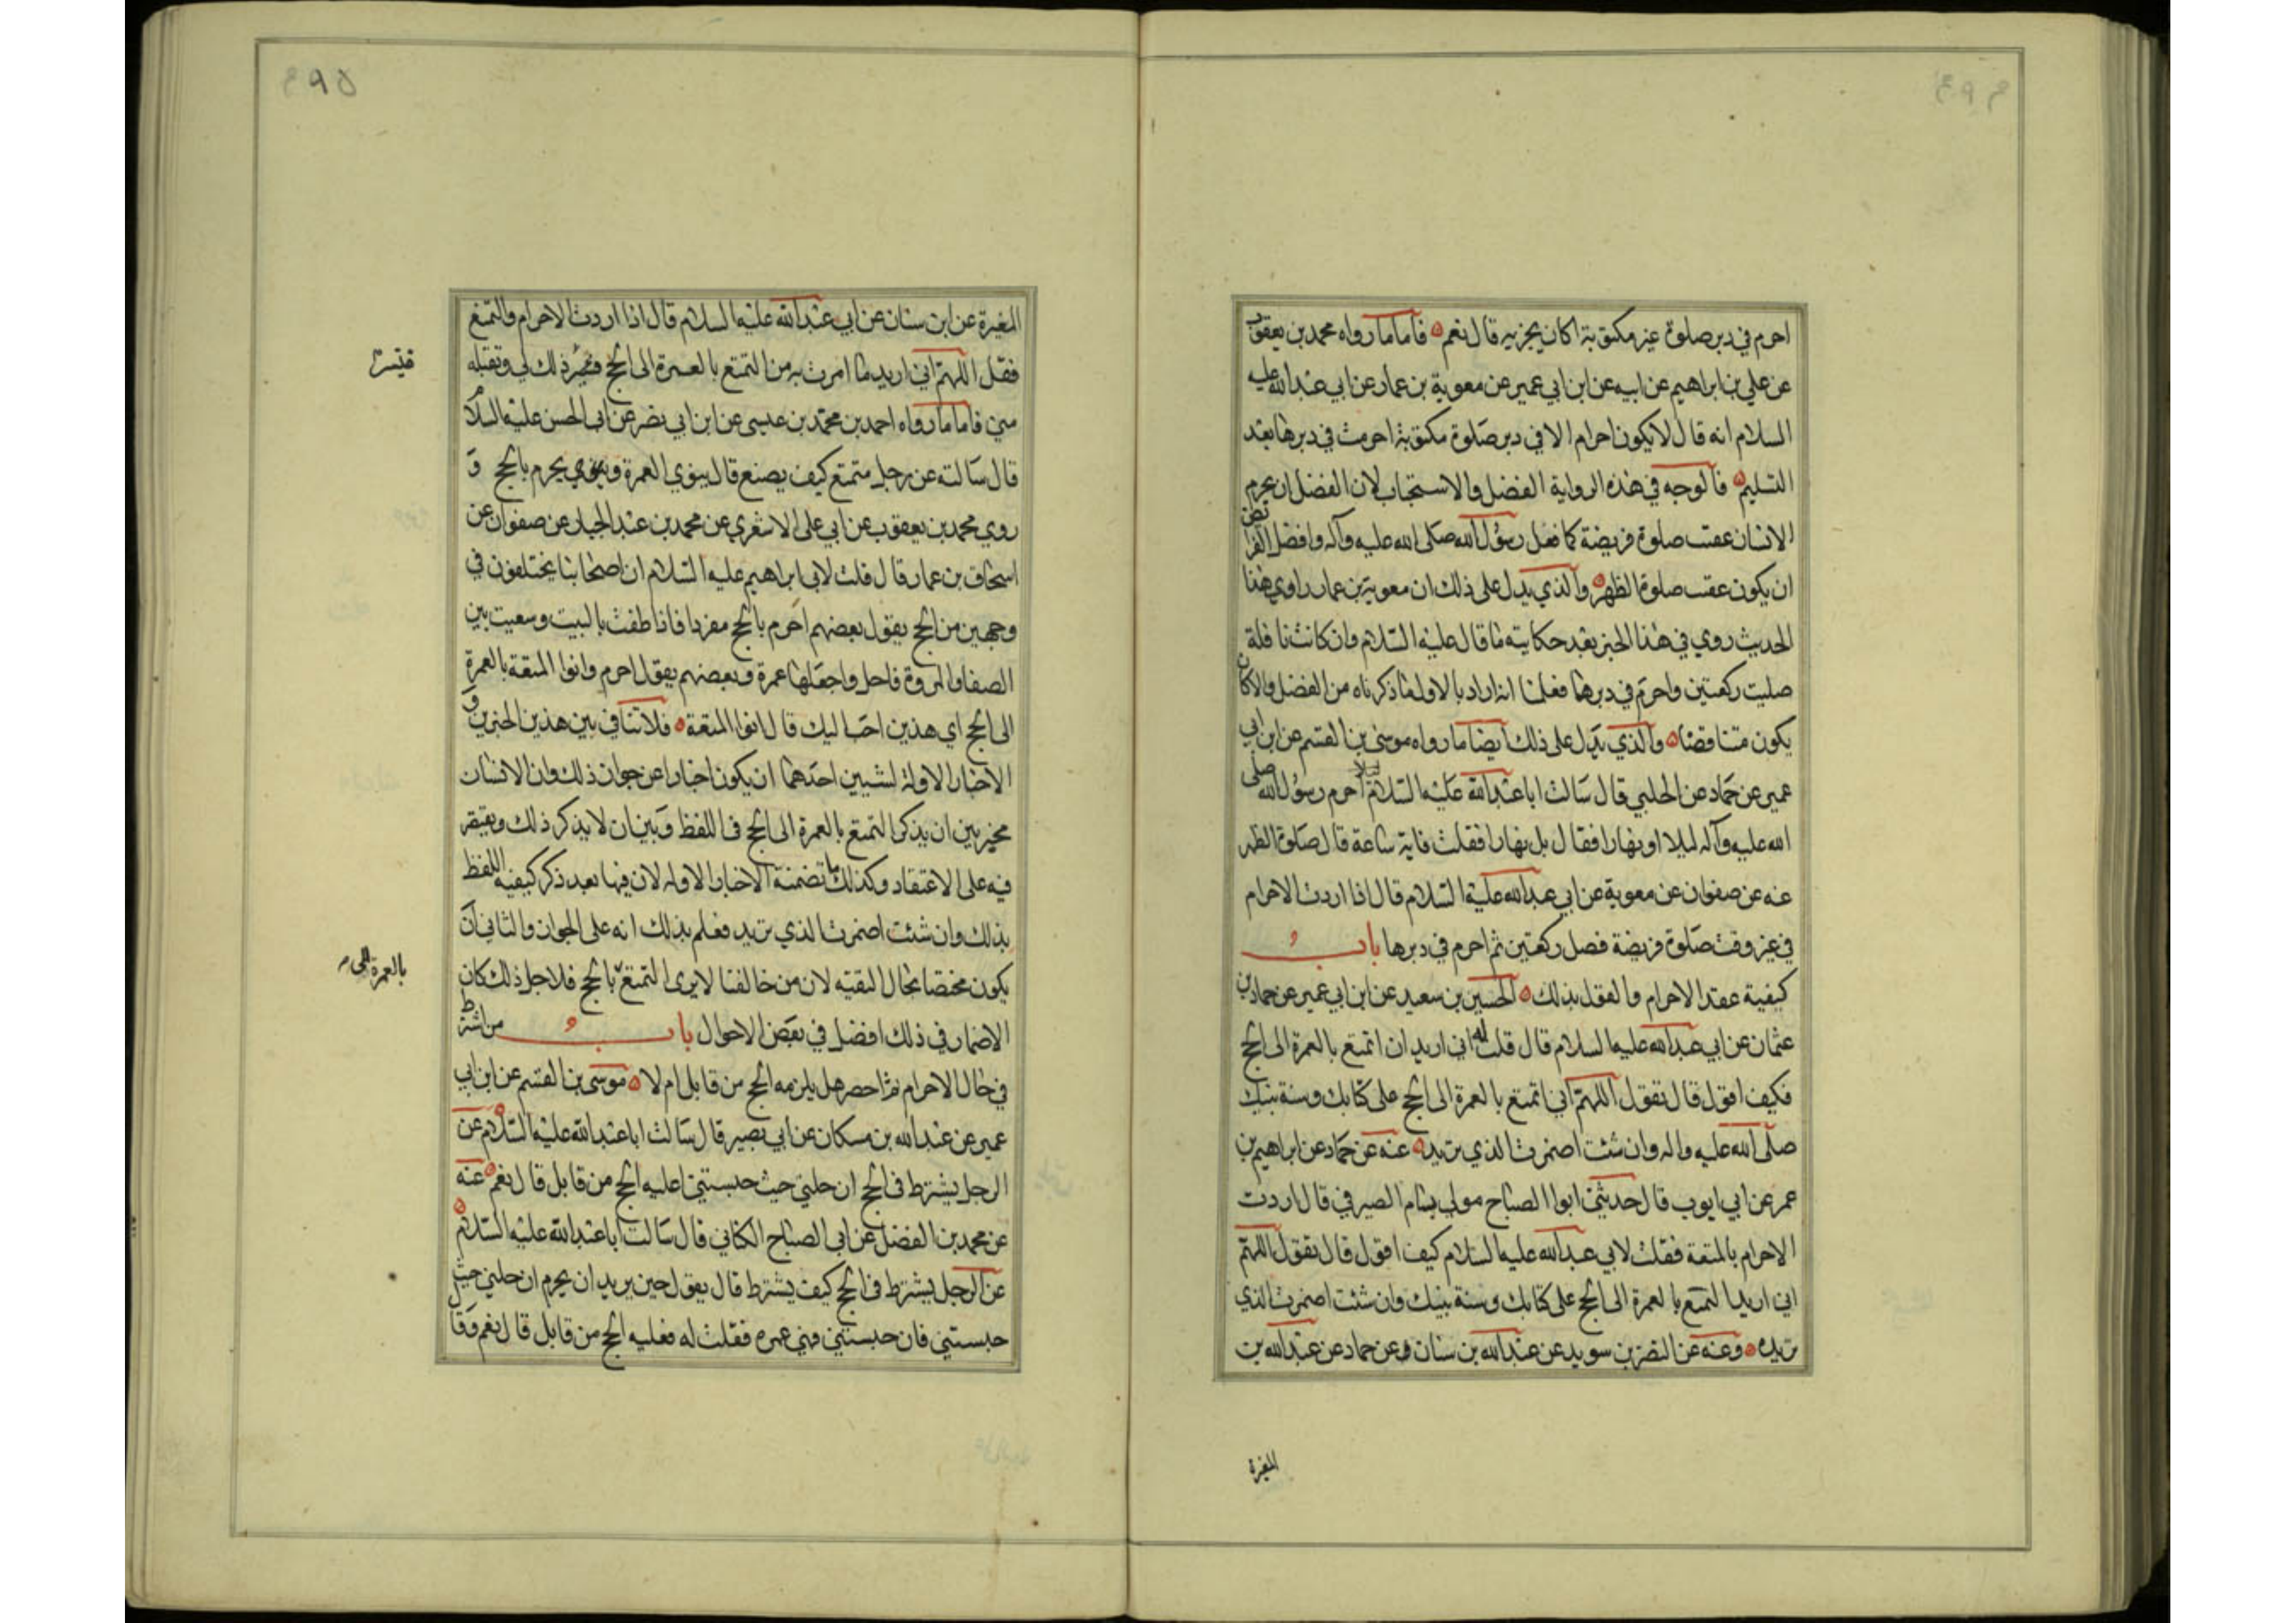 احرم في دبر صلوة غير مكتوبة اكان يجزيه قال نعم فاما ما رواه محمد بن يعقوب
عن علي بن ابراهيم عن ابيه عن ابن ابي عمير عن معوية بن عمار عن ابي عبدالله عليه
السلام انه قال لا يكون احرام الا في دبر صلوة مكتوبة احرمت في دبرها بعد
التسليم فالوجه في هذه الرواية الفضل والاستحباب لان الفضل ان يحرم
الانسان عقيب صلوة فريضة كما فعل رسول الله صلى الله عليه وآله وافضل الفرائض
ان يكون عقيب صلوة الظهر والذي يدل على ذلك ان معوية بن عمار راوي هذا
الحديث روي في هذا الخبر بعد حكايته ما قال عليه السلام وان كانت نافلة
صليت ركعتين واحرم في دبرها فعلمنا انه اراد بالاول ما ذكرناه من الفضل والا كان
يكون متناقضا والذي يدل على ذلك ايضا ما رواه موسى بن القسم عن ابن ابي
عمير عن حماد عن الحلبي قال سالت ابا عبدالله عليه السلام أحرم رسول الله صلى
الله عليه وآله ليلا او نهارا فقال بل نهارا فقلت فاية ساعة قال صلوة الظهر
عنه عن صفوان عن معوية عن ابي عبدالله عليه السلام قال اذا اردت الاحرام
في غير وقت صلوة فريضة فصل ركعتين ثم احرم في دبرها باب
كيفية عقد الاحرام والقول بذلك الحسين بن سعيد عن ابن ابي عمير عن حماد بن
عثمان عن ابي عبدالله عليه السلام قال قلت له اني اريد ان اتمتع بالعمرة الى الحج
فكيف اقول قال تقول اللهم اني اتمتع بالعمرة الى الحج على كتابك وسنة نبيك
صلى الله عليه واله وان شئت اضمرت الذي تريد عنه عن حماد عن ابراهيم بن
عمر عن ابي ايوب قال حدثني ابوا الصباح مولى بسام الصيرفي قال اردت
الاحرام بالمتعة فقلت لابي عبدالله عليه السلام كيف اقول قال تقول اللهم
اني اريد التمتع بالعمرة الى الحج على كتابك وسنة نبيك وان شئت اضمرت الذي
تريد وعنه عن النضر بن سويد عن عبدالله بن سنان وعن حماد عن عبدالله بن
المغيرة
٣٩٥
المغيرة عن ابن سنان عن ابي عبدالله عليه السلام قال اذا اردت الاحرام والتمتع
فقل اللهم اني اريد ما امرت به من التمتع بالعمرة الى الحج فيسر ذلك لي وتقبله
فيسر
مني فاما ما رواه احمد بن محمد بن عيسى عن ابن ابي نصر عن ابي الحسن عليه السلام
قال سالته عن رجل متمتع كيف يصنع قال ينوي العمرة ويحرم بالحج و
روي محمد بن يعقوب عن ابي على الاشعري عن محمد بن عبد الجبار عن صفوان عن
اسحاق بن عمار قال قلت لابي ابراهيم عليه السلام ان اصحابنا يختلفون في
وجهين من الحج يقول بعضهم احرم بالحج مفردا فاذا طفت بالبيت وسعيت بين
الصفا والمروة فاحل واجعلها عمرة وبعضهم يقول احرم وانوا المتعة بالعمرة
الى الحج اي هذين احب اليك قال انوا المتعة فلا تنافي بين هذين الخبرين و
الاخبار الاولة لشيئين احدهما ان يكون اخبارا عن جواز ذلك وان الانسان
مخير بين ان يذكر التمتع بالعمرة الى الحج في اللفظ وبين ان لا يذكر ذلك ويقتصر
فيه على الاعتقاد وكذلك ما تضمنة الاخبار الاوله لان فيها بعد ذكر كيفيه اللفظ
بذلك وان شئت اضمرت الذي تريد فعلم بذلك انه على الجواز والثاني ان
يكون مختصا بحال التقيه لان من خالفنا لا يرى التمتع بالحج فلاجل ذلك كان
بالعمرة الى
الاضمار في ذلك افضل في بعض الاحوال باب من اشترط
في حال الاحرام ثم احصر هل يلزمه الحج من قابل ام لا موسى بن القسم عن ابن ابي
عمير عن عبدالله بن مسكان عن ابي بصير قال سالت ابا عبدالله عليه السلام عن
الرجل يشترط في الحج ان حلني حيث حبستني اعليه الحج من قابل قال نعم عنه
عن محمد بن الفضل عن ابي الصباح الكناني قال سالت ابا عبدالله عليه السلام
عن الرجل يشترط في الحج كيف يشترط قال يقول حين يريد ان يحرم ان حلني حيث
حبستني فان حبستني فهي عمره فقلت له فعليه الحج من قابل قال نعم وقا